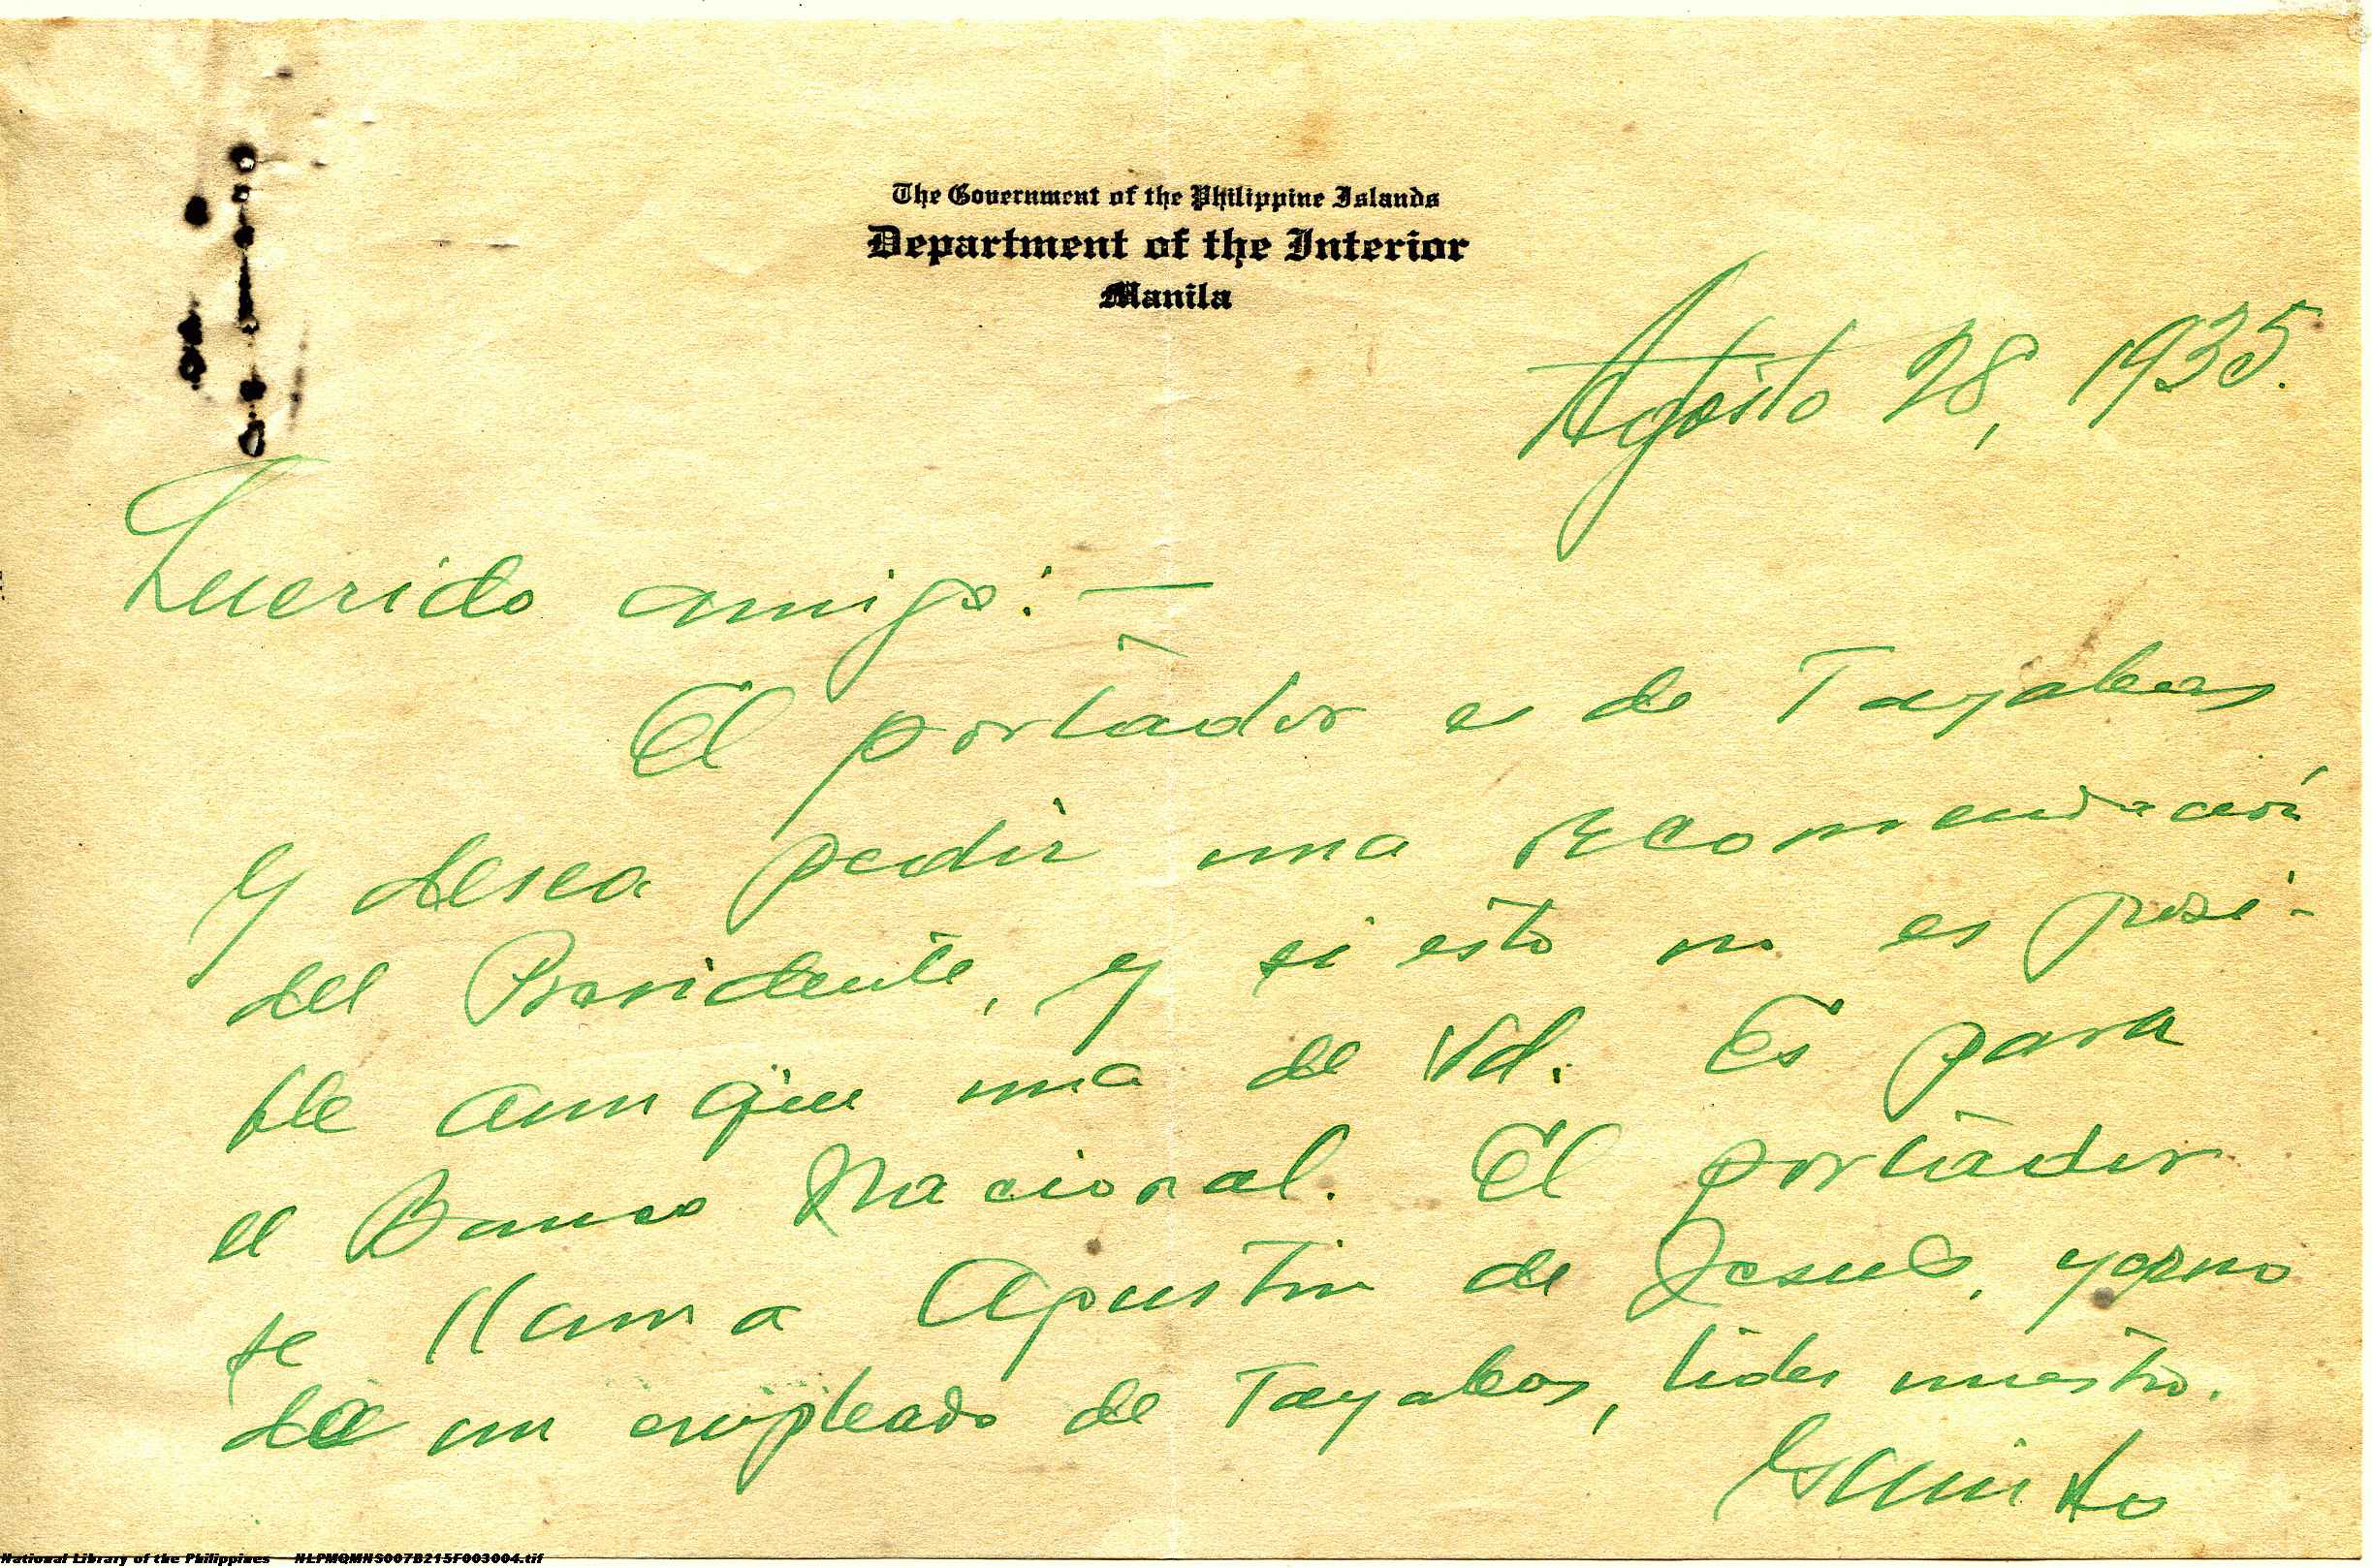 The Government of the Philippine Islands
Department of the Interior
Manila
Agosto 28, 1935.
Querido amigo:—
El portador es de Tayabas
y desea pedir una recomendación
del Presidente, y si esto no es posi-
ble aunque una de Vd. Es para
el Banco Nacional. El portador
se llama Agustin de Jesus, yerno
de un empleado de Tayabas, lider nuestro.
National Library of the Philippines NLPMQMNS007B215F003004.tif